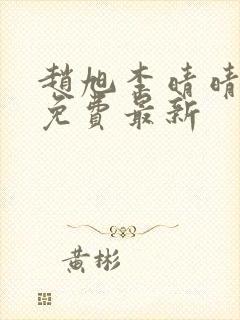 趙旭李晴晴
免費最新
黃彬